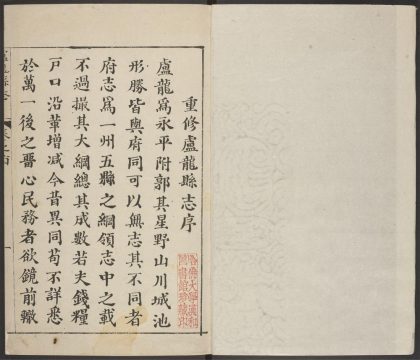 重修盧龍縣志序
盧龍爲永平附郭其星野山川城池
形勝皆與府同可以無志其不同者
府志爲一州五縣之綱領志中之載
不過撮其大綱總其成數若夫錢糧
戸口沿革增減今昔異同苟不詳悉
於萬一後之留心民務者欲鏡前轍
哈佛大學漢和
圖書館珍藏印
盧龍縣志
一